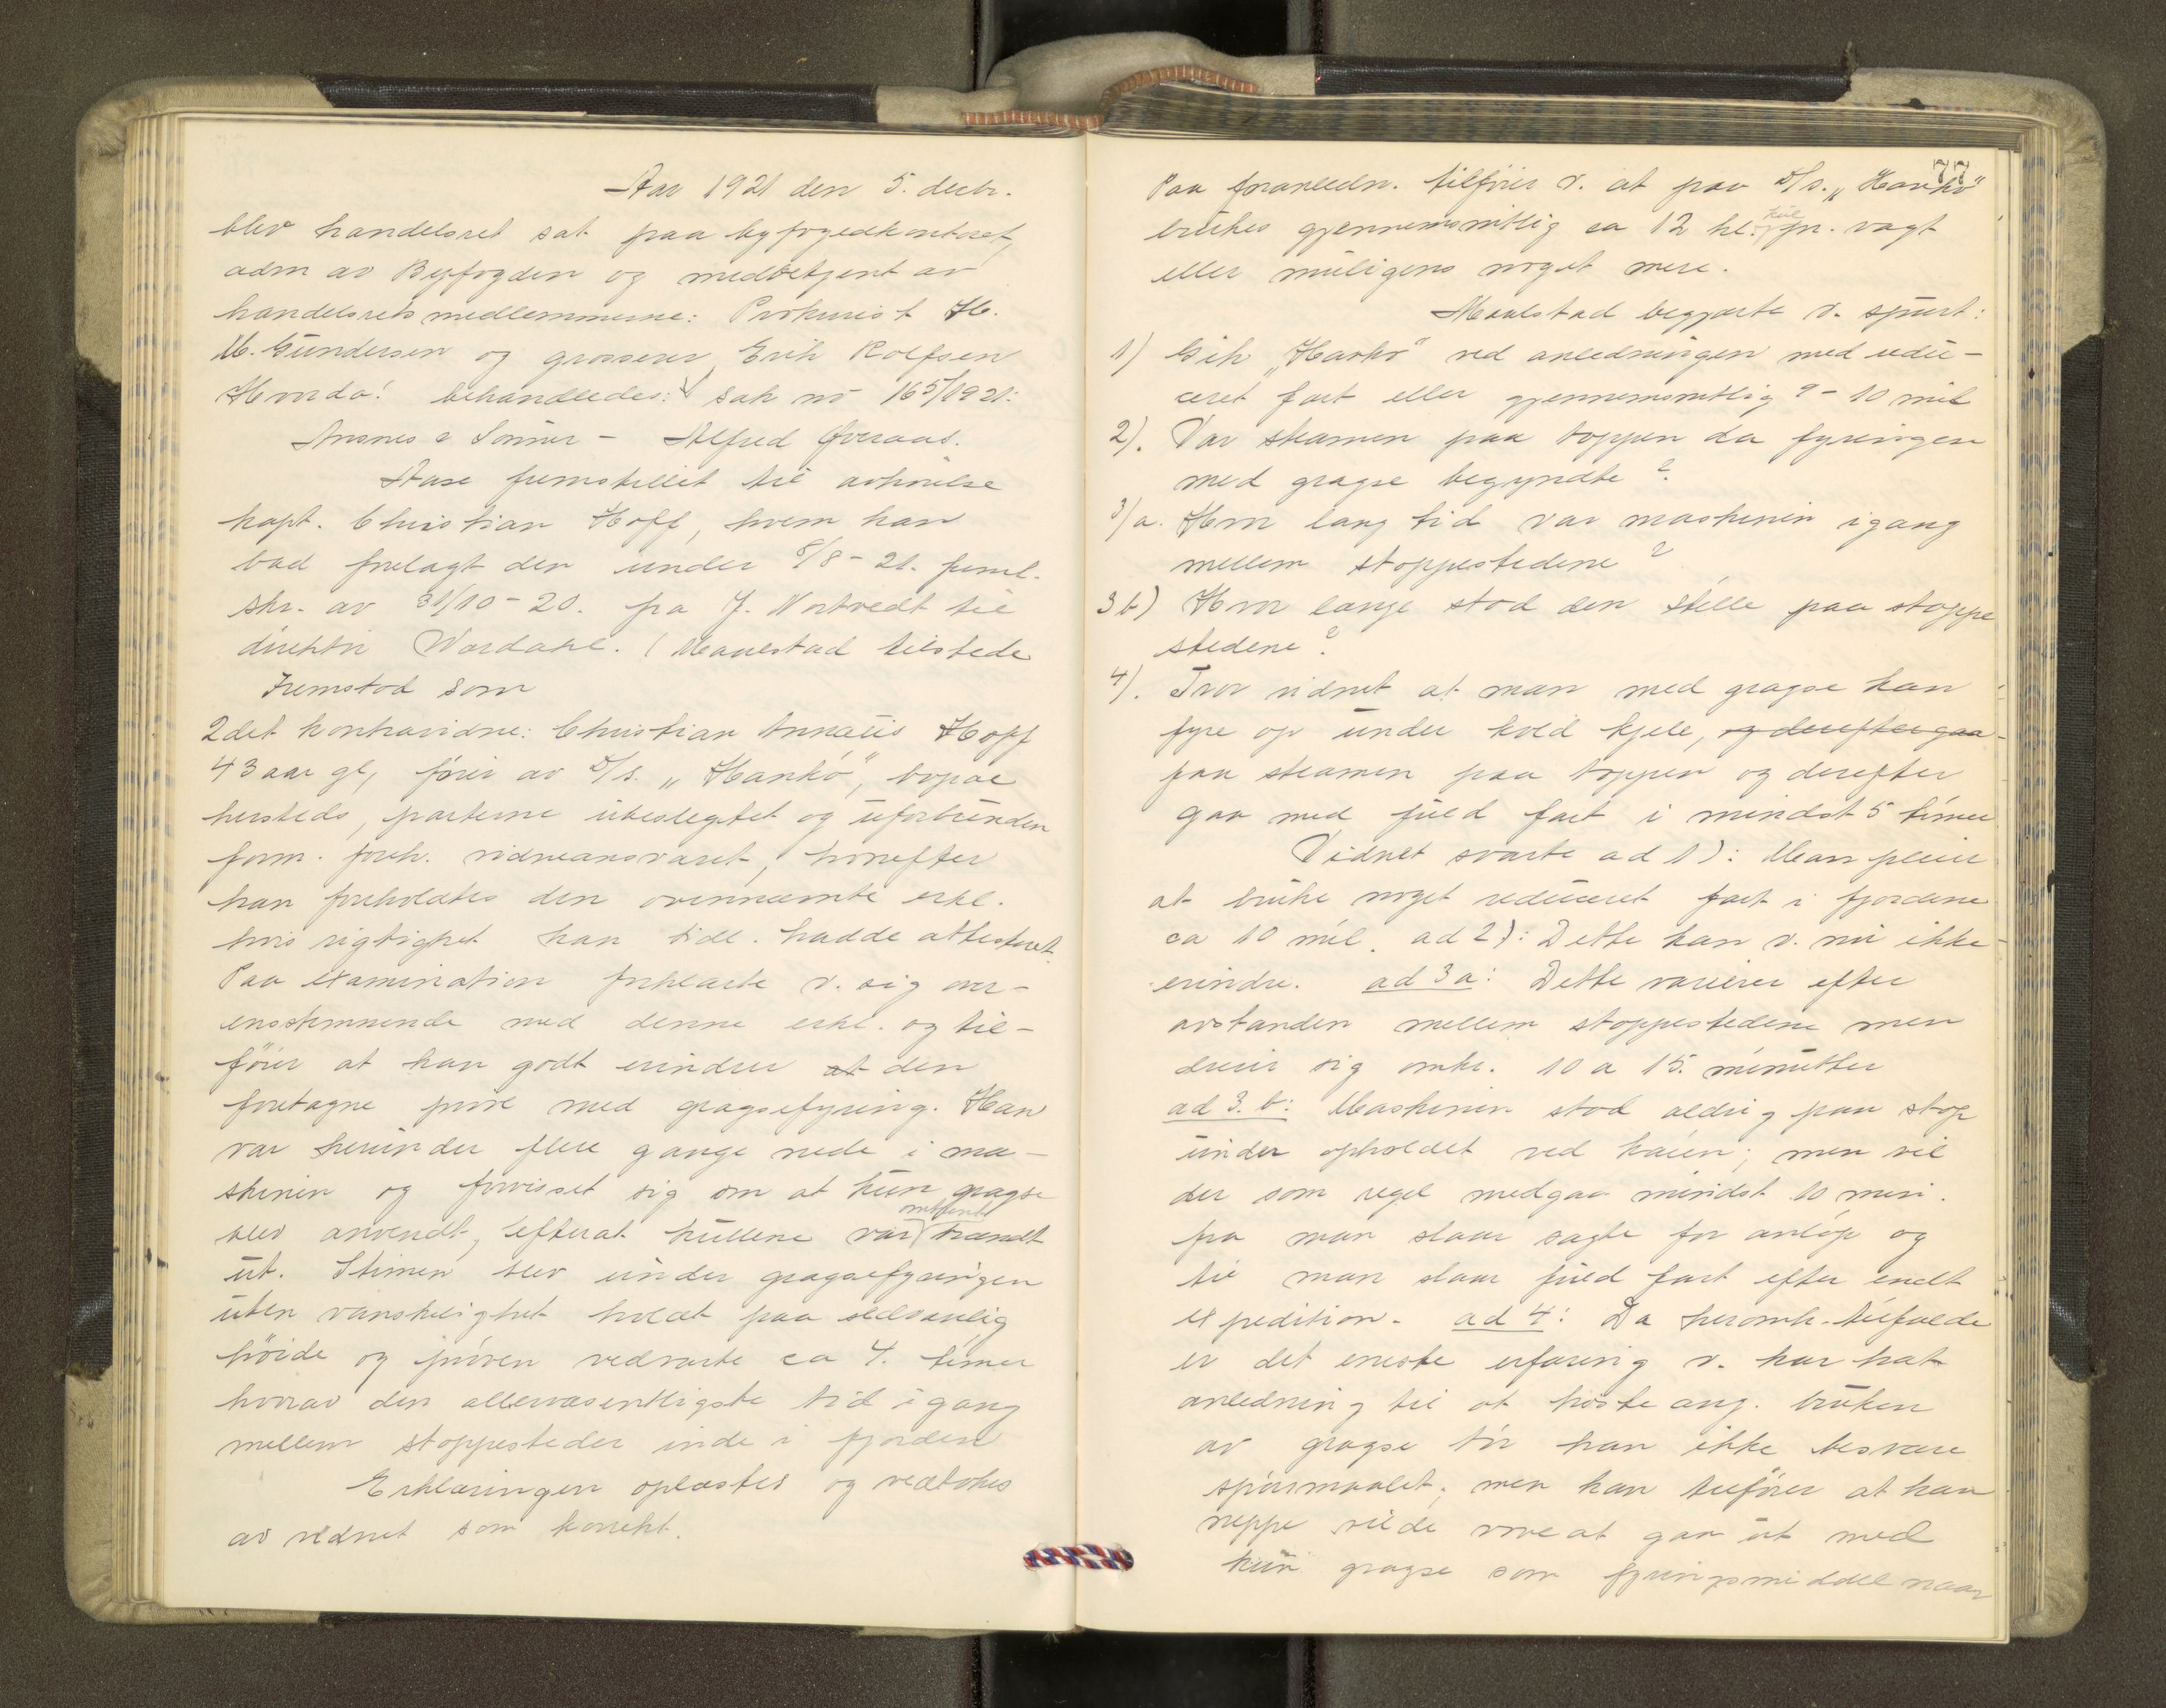 Aar 1921 den 5. decbr.
blev handelsret sat paa byfogedkontoret,
adm av Byfogden og medbetjent av
handelsretsmedlemmerne: Prokurist H.
M. Gundersen og grosserer Erik Rolfsen
Hvorda! behandledes: Sak no 165/1921:
Ansnes & Sönner - Alfred Overaas.
Aase fremstillet til avhörelse
kapt. Christian Hoff, hvem han
bad forelagt den under 8/8-21. freml.
skr. av 31/10-20. fra J. Nortvedt til
direktör Wardahl. (Maalstad tilstede
Fremstod som
2det kontravidne: Christian Annæus Hoff
43 aar gl, förer av D/s. „Hankö", bopæl
hersteds, parterne ubeslegtet og uforbunden
form. foreh. vidneansvaret, hvorefter
han foreholdtes den ovennævnte erkl.
hvis rigtighet han tidl. hadde attesteret.
Paa examination forklarte v. sig over-
ensstemmende med denne erkl. og til-
föier at han godt erindrer at den
foretagne pröve med gragsefyring. Han
var herunder flere gange nede i ma-
skinen og forvisset sig om at kun gragse
omtrent
blev anvendt, efterat kullene var brændt
ut. Stimen blev under gragsefyringen
uten vanskelighet holdt paa sedvanlig
höide og pröven vedvarte ca 4. timer
hvorav den allervæsentligste tid igang
mellem stoppesteder inde i fjorden
Erklæringen oplæstes og vedtokes
av vidnet som korrekt.
77
Paa foranledn. tilföier v. at paa D/s. „Hankö"
kul
brukes gjennemsnitlig ca 12 hl. pr. vagt
eller muligens noget mere.
Maalstad begjærte v. spurt:
1) Gik „Hankö" ved anledningen med redu-
ceret fart eller gjennemsnitlig 9-10 mil
2). Var steamen paa toppen da fyringen
med gragse begyndte?
3/a. Hvor lang tid var maskinen igang
mellem stoppestedene?
3b) Hvor lange stod den stille paa stoppe
stedene?
4). Tror vidnet at man med gragse kan
fyre op under kold kjele, og derefter gaa
faa steamen paa toppen og derefter
gaa med fuld fart i mindst 5 timer
Vidnet svarte ad 1): Man pleier
at bruke noget reduceret fart i fjordene
ca 10 mil. ad 2): Dette kan v. nu ikke
erindre. ad 3a: Dette varierer efter
avstanden mellem stoppestedene men
dreier sig omkr. 10 a 15. minutter
ad 3. b: Maskinen stod aldrig paa stop
under opholdet ved kaien; men vil
der som regel medgaa mindst 10 min.
fra man slaar sagte for anlöp og
til man slaar fuld fart efter endt
expedition. ad 4: Da heromh. tilfælde
er det eneste erfaring v. har hat
anledning til at höste ang. bruken
av gragse tör han ikke besvare
spörsmaalet; men han tilföier at han
neppe vilde vove at gaa ut med
kun gragse som fyringsmiddel naar